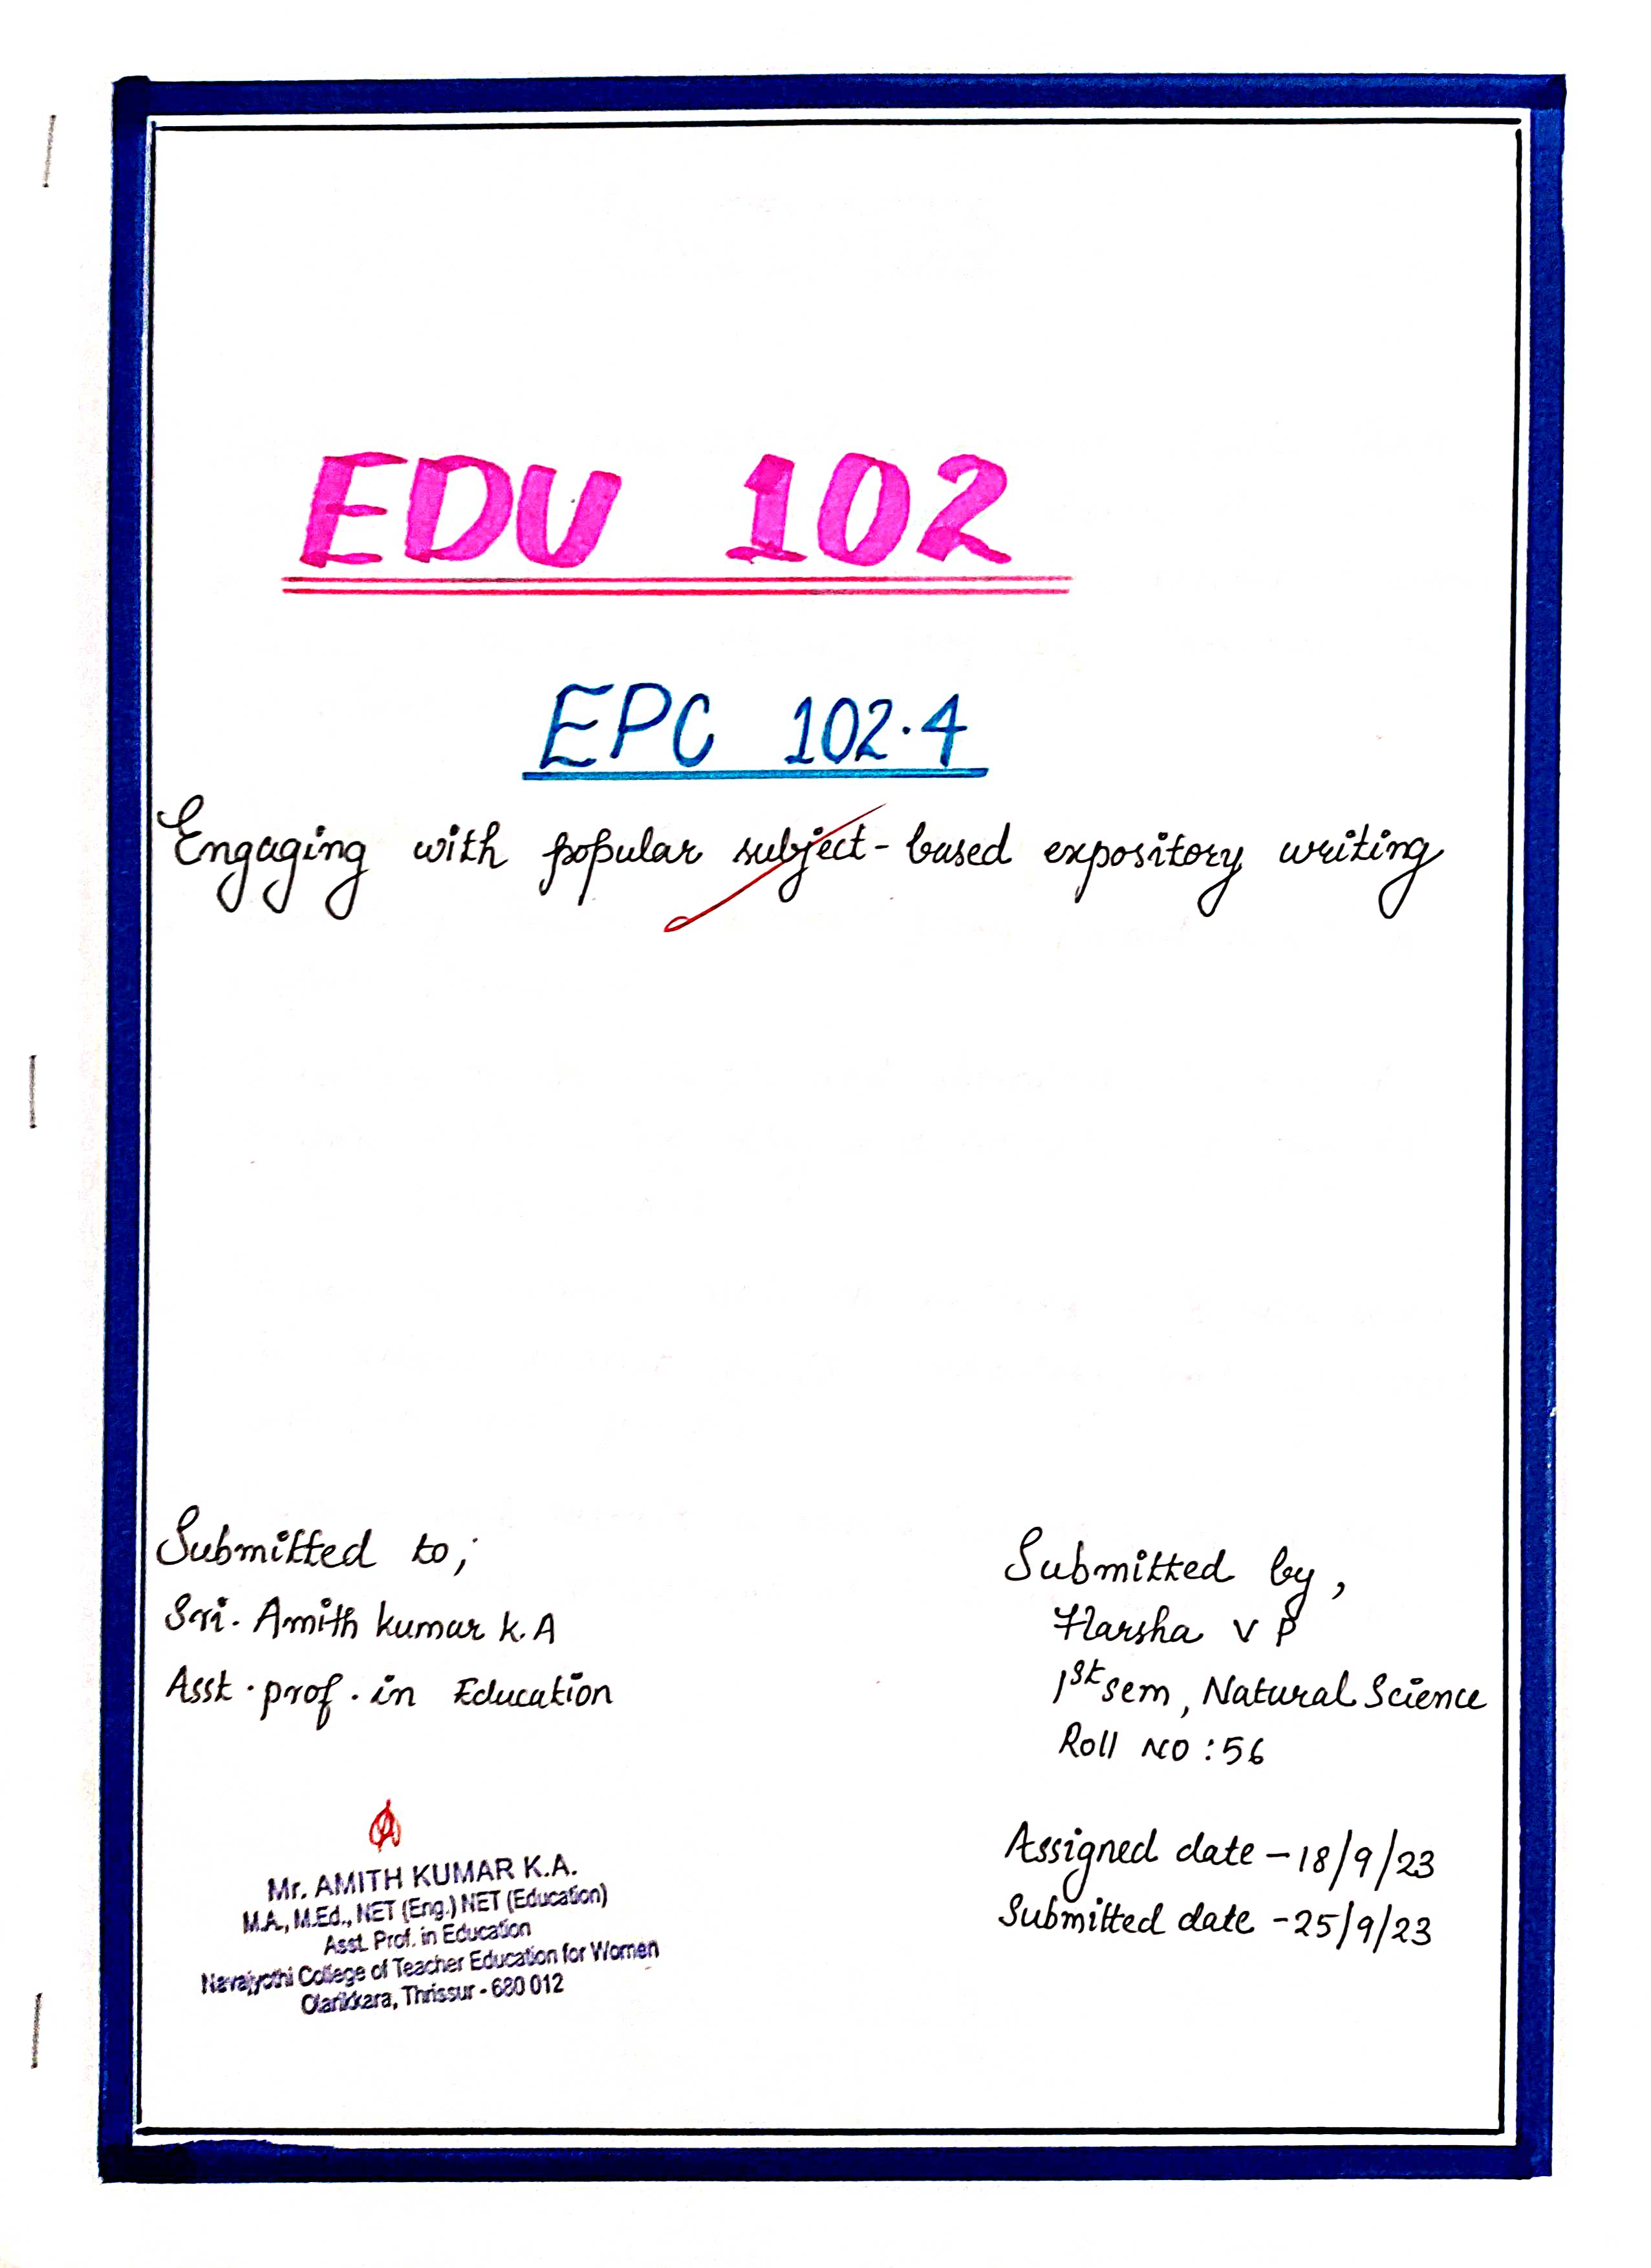 EDU 102
EPC 102.4
Engaging with popular subject-based expository writing
Submitted to;
Sri. Amith kumar K.A
Asst. prof. in Education
Submitted by,
Harsha V P
1st sem, Natural Science
Roll NO : 56
Assigned date - 18/9/23
Submitted date - 25/9/23
Mr. AMITH KUMAR K.A.
M.A., M.Ed., NET (Eng.) NET (Education)
Asst. Prof. in Education
Navajyothi College of Teacher Education for Women
Olarikkara, Thrissur - 680 012